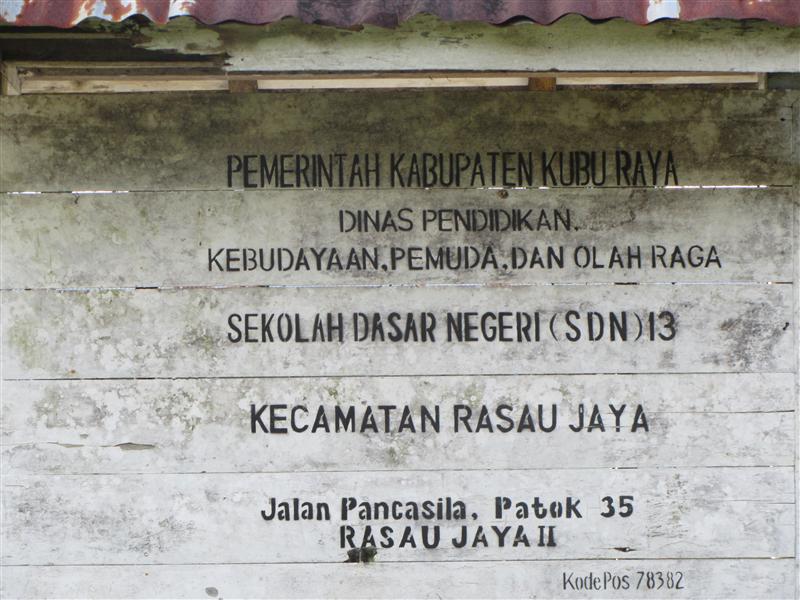 PEMERINTAH KABUPATEN KUBU RAYA
DINAS PENDIDIKAN,
KEBUDAYAAN,PEMUDA,DAN OLAH RAGA
SEKOLAH DASAR NEGERI (SDN) 13
KECAMATAN RASAU JAYA
Jalan Pancasila, Patok 35
RASAU JAYA II
Kode Pos 78382